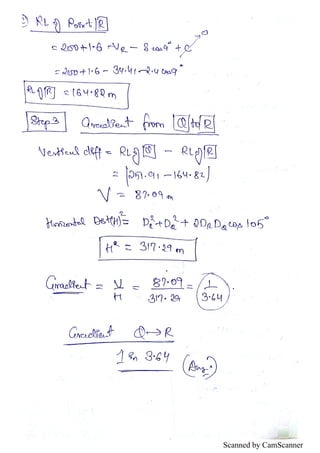 RL of Point R
= 200+1.6 -VR - S cos9° + C → 0
= 200+1.6 - 34.41 -2.4 cos9°
RL of R = 164.82 m
Step 3 Gradient from Q to R
Vertical diff = RL of Q - RL of R
= |251.91 - 164.82|
V = 87.09 m
Horizontal Dist(H)² = D²+D² + 2D D cos 105°
H² = 317.29 m
Gradient = V/H = 87.09/317.29 = 1/3.64
Gradient Q → R
1 in 3.64 (Ans.)
Scanned by CamScanner